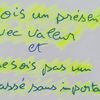 ois un présen
vec valeur
et
esois pas un
assé sans importa